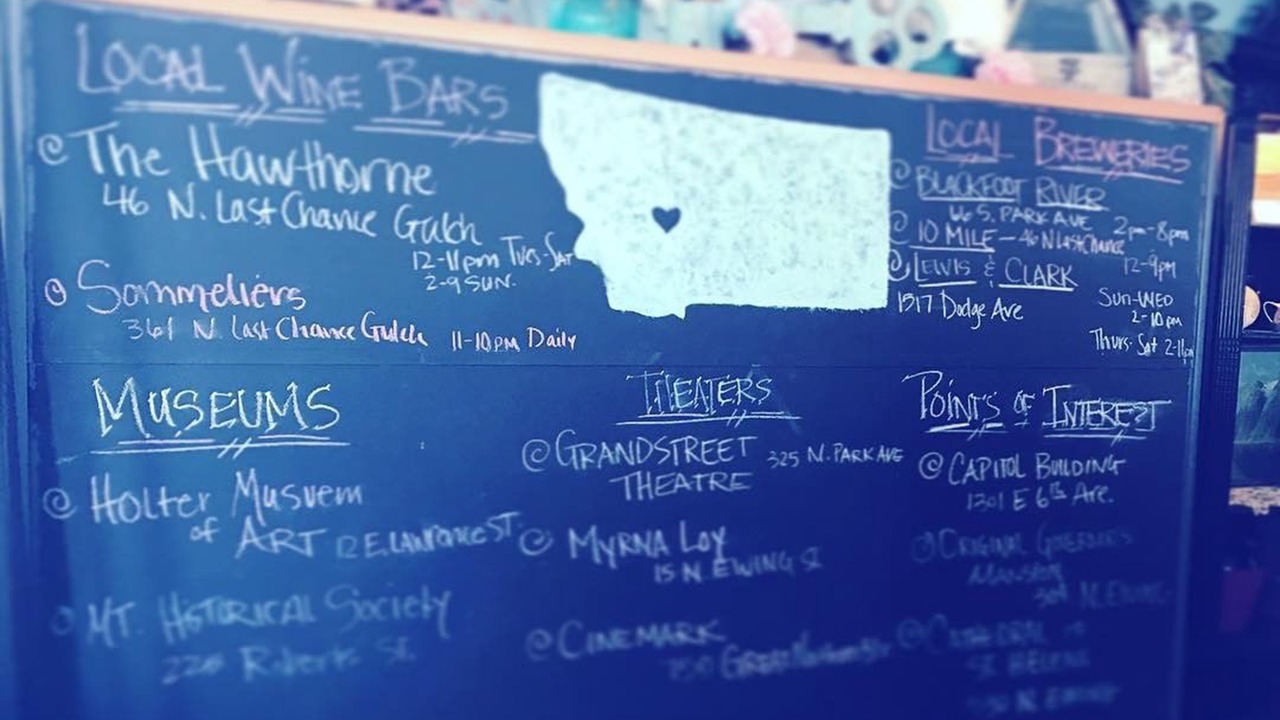 LOCAL WINE BARS
@ The Hawthorne
46 N. Last Chance Gulch
12-11pm Tues-Sat
2-9 SUN.
@ Sommeliers
361 N. Last Chance Gulch 11-10PM Daily
LOCAL BREWERIES
@ BLACKFOOT RIVER
66 S. PARK AVE 2pm-8pm
@ 10 MILE - 46 N Last Chance
12-9pm
@ LEWIS & CLARK
1517 Dodge Ave
Sun-WED
2-10pm
Thurs-Sat 2-11pm
MUSEUMS
@ Holter Musuem
of ART 12 E. LAWRENCE ST.
@ MT. HISTORICAL Society
225 Roberts St.
THEATERS
@ GRANDSTREET 325 N. PARK AVE
THEATRE
@ MYRNA LOY
15 N. EWING ST
@ CINEMARK
750 Great Northern
POINTS OF INTEREST
@ CAPITOL BUILDING
1301 E 6th Ave.
@ ORIGINAL GOVERNORS
MANSION
304 N. EWING
@ CATHEDRAL
ST. HELENA
N. EWING